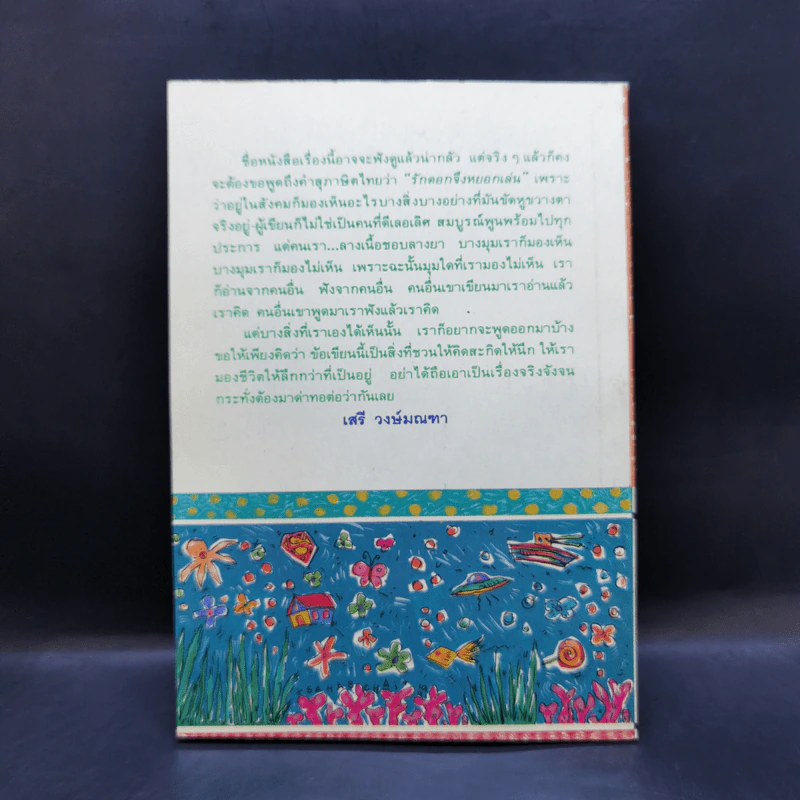 ชื่อหนังสือเรื่องนี้อาจจะฟังดูแล้วน่ากลัว แต่จริง ๆ แล้วก็คง
จะต้องขอพูดถึงคำสุภาษิตไทยว่า "รักดอกจึงหยอกเล่น" เพราะ
ว่าอยู่ในสังคมก็มองเห็นอะไรบางสิ่งบางอย่างที่มันขัดหูขวางตา
จริงอยู่ ผู้เขียนก็ไม่ใช่เป็นคนที่ดีเลอเลิศ สมบูรณ์พูนพร้อมไปทุก
ประการ แต่คนเรา...ลางเนื้อชอบลางยา บางมุมเราก็มองเห็น
บางมุมเราก็มองไม่เห็น เพราะฉะนั้นมุมใดที่เรามองไม่เห็น เรา
ก็อ่านจากคนอื่น ฟังจากคนอื่น คนอื่นเขาเขียนมาเราอ่านแล้ว
เราคิด คนอื่นเขาพูดมาเราฟังแล้วเราคิด
แต่บางสิ่งที่เราเองได้เห็นนั้น เราก็อยากจะพูดออกมาบ้าง
ขอให้เพียงคิดว่า ข้อเขียนนี้เป็นสิ่งที่ชวนให้คิดสะกิดให้นึก ให้เรา
มองชีวิตให้ลึกกว่าที่เป็นอยู่ อย่าได้ถือเอาเป็นเรื่องจริงจังจน
กระทั่งต้องมาด่าทอต่อว่ากันเลย
เสรี วงษ์มณฑา